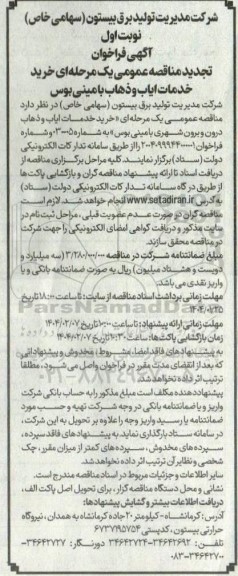 شرکت مدیریت تولید برق بیستون (سهامی خاص)
نوبت اول
آگهی فراخوان
تجدید مناقصه عمومی یک مرحله‌ای خرید
خدمات ایاب و ذهاب با مینی بوس
شرکت مدیریت تولید برق بیستون (سهامی خاص) در نظر دارد
مناقصه عمومی یک مرحله‌ای «خرید خدمات ایاب و ذهاب
درون و برون شهری با مینی بوس» به شماره ۳۰۰۰۵ و شماره
فراخوان ۲۰۰۴۰۹۹۹۴۴۰۰۰۰۰۱ را از طریق سامانه تدارکات الکترونیکی
دولت (ستاد) برگزار نمایند. کلیه مراحل برگزاری مناقصه از
دریافت اسناد تا ارائه پیشنهاد مناقصه گران و بازگشایی پاکت ها
از طریق درگاه سامانه تدارکات الکترونیکی دولت (ستاد)
به آدرس www.setadiran.ir انجام خواهد شد. لازم است
مناقصه گران در صورت عدم عضویت قبلی، مراحل ثبت نام در
سایت مذکور و دریافت گواهی امضای الکترونیکی را جهت شرکت
در مناقصه محقق سازند.
مبلغ ضمانتنامه شرکت در مناقصه ۳/۲۸۰/۰۰۰/۰۰۰ (سه میلیارد و
دویست و هشتاد میلیون) ریال به صورت ضمانتنامه بانکی و یا
واریز نقدی می باشد.
مهلت زمانی برداشت اسناد مناقصه از سایت: تا ساعت ۱۸:۰۰ تاریخ
مهلت زمانی ارائه پیشنهاد: تا ساعت تاریخ ۱۴۰۴/۰۲/۰۷
زمان بازگشایی پاکت ها: ساعت تاریخ ۱۴۰۴/۰۲/۰۷
به پیشنهادهای فاقد امضا، مشروط، مخدوش و پیشنهاداتی
که بعد از انقضای مدت مقرر در فراخوان واصل می شود، مطلقا
ترتیب اثر داده نخواهد شد.
پیشنهاد دهنده مکلف است مبلغ مذکور را به حساب بانکی شرکت
واریز و یا ضمانتنامه بانکی در وجه شرکت تهیه و حسب مورد
ضمانتنامه یا رسید واریز وجه را علاوه بر تحویل به این شرکت،
در سامانه ستاد بارگذاری نماید. به پیشنهادهای فاقد سپرده،
سپرده های مخدوش، سپرده های کمتر از میزان مقرر، چک
شخصی و نظایر آن ترتیب اثر داده نخواهد شد.
سایر اطلاعات و جزئیات مربوط در اسناد مناقصه مندرج است.
نشانی و محل دستگاه مناقصه گزار، برای تحویل اصل پاکت الف،
دریافت اطلاعات بیشتر و گشایش پیشنهادها:
آدرس: کرمانشاه - کیلومتر ۲۰ جاده کرمانشاه به همدان، نیروگاه
حرارتی بیستون، کدپستی ۶۷۳۷۹۵۷۵۴
تلفن: ۳۴۶۴۲۶۹۲-۳۴۶۴۲۷۲۴ دورنگار: ۳۴۶۴۲۷۲۷-
۰۸۳-۳۴۶۴۲۷۰۰